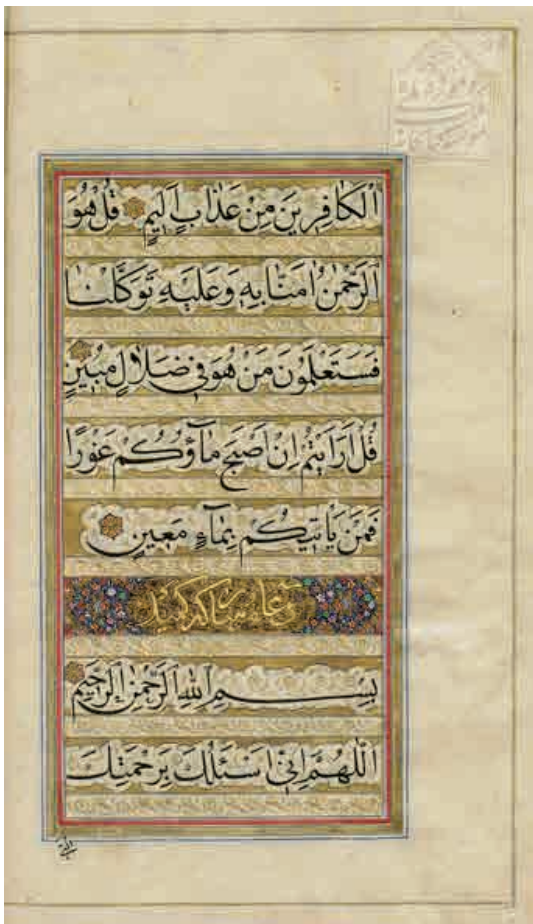 اَلْكَافِرِينَ مِنْ عَذَابٍ اَلِيمٍ قُلْ هُوَ
الرَّحْمٰنُ اٰمَنَّا بِهِ وَعَلَيْهِ تَوَكَّلْنَا
فَسَتَعْلَمُونَ مَنْ هُوَ فِي ضَلَالٍ مُبِينٍ
قُلْ اَرَاَيْتُمْ اِنْ اَصْبَحَ مَآؤُكُمْ غَوْرًا
فَمَنْ يَاْتِيكُمْ بِمَآءٍ مَعِينٍ
دعای
بِسْمِ اللّٰهِ الرَّحْمٰنِ الرَّحِيمِ
اَللّٰهُمَّ اِنِّي اَسْئَلُكَ بِرَحْمَتِكَ